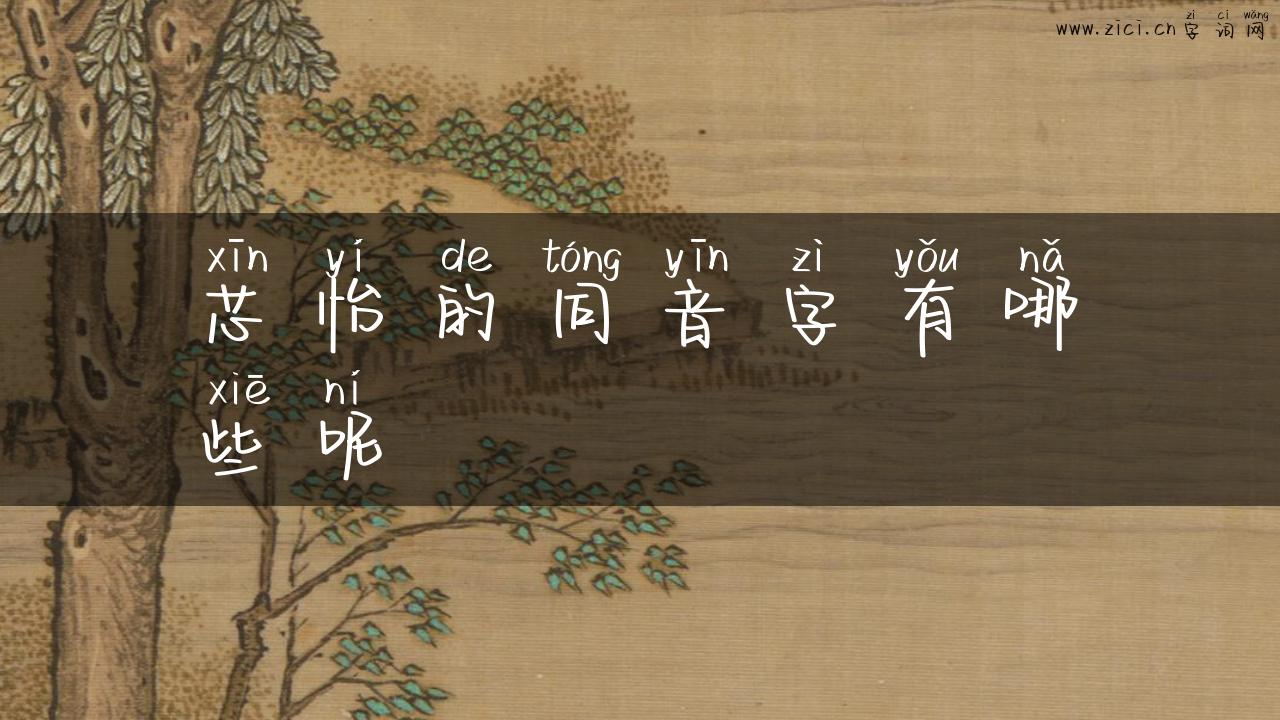 zì cí wǎng
www.zici.cn 字词网
xīn yí de tóng yīn zì yǒu nǎ
芯怡的同音字有哪
xiē ní
些呢